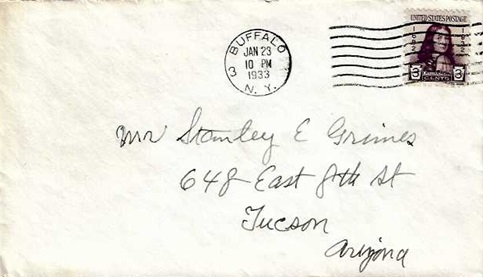 BUFFALO
3
JAN 23
10 PM
1933
N. Y.
UNITED STATES POSTAGE
3 CENTS 3
Mr Stanley E Grimes
648 East 8th St
Tucson
Arizona